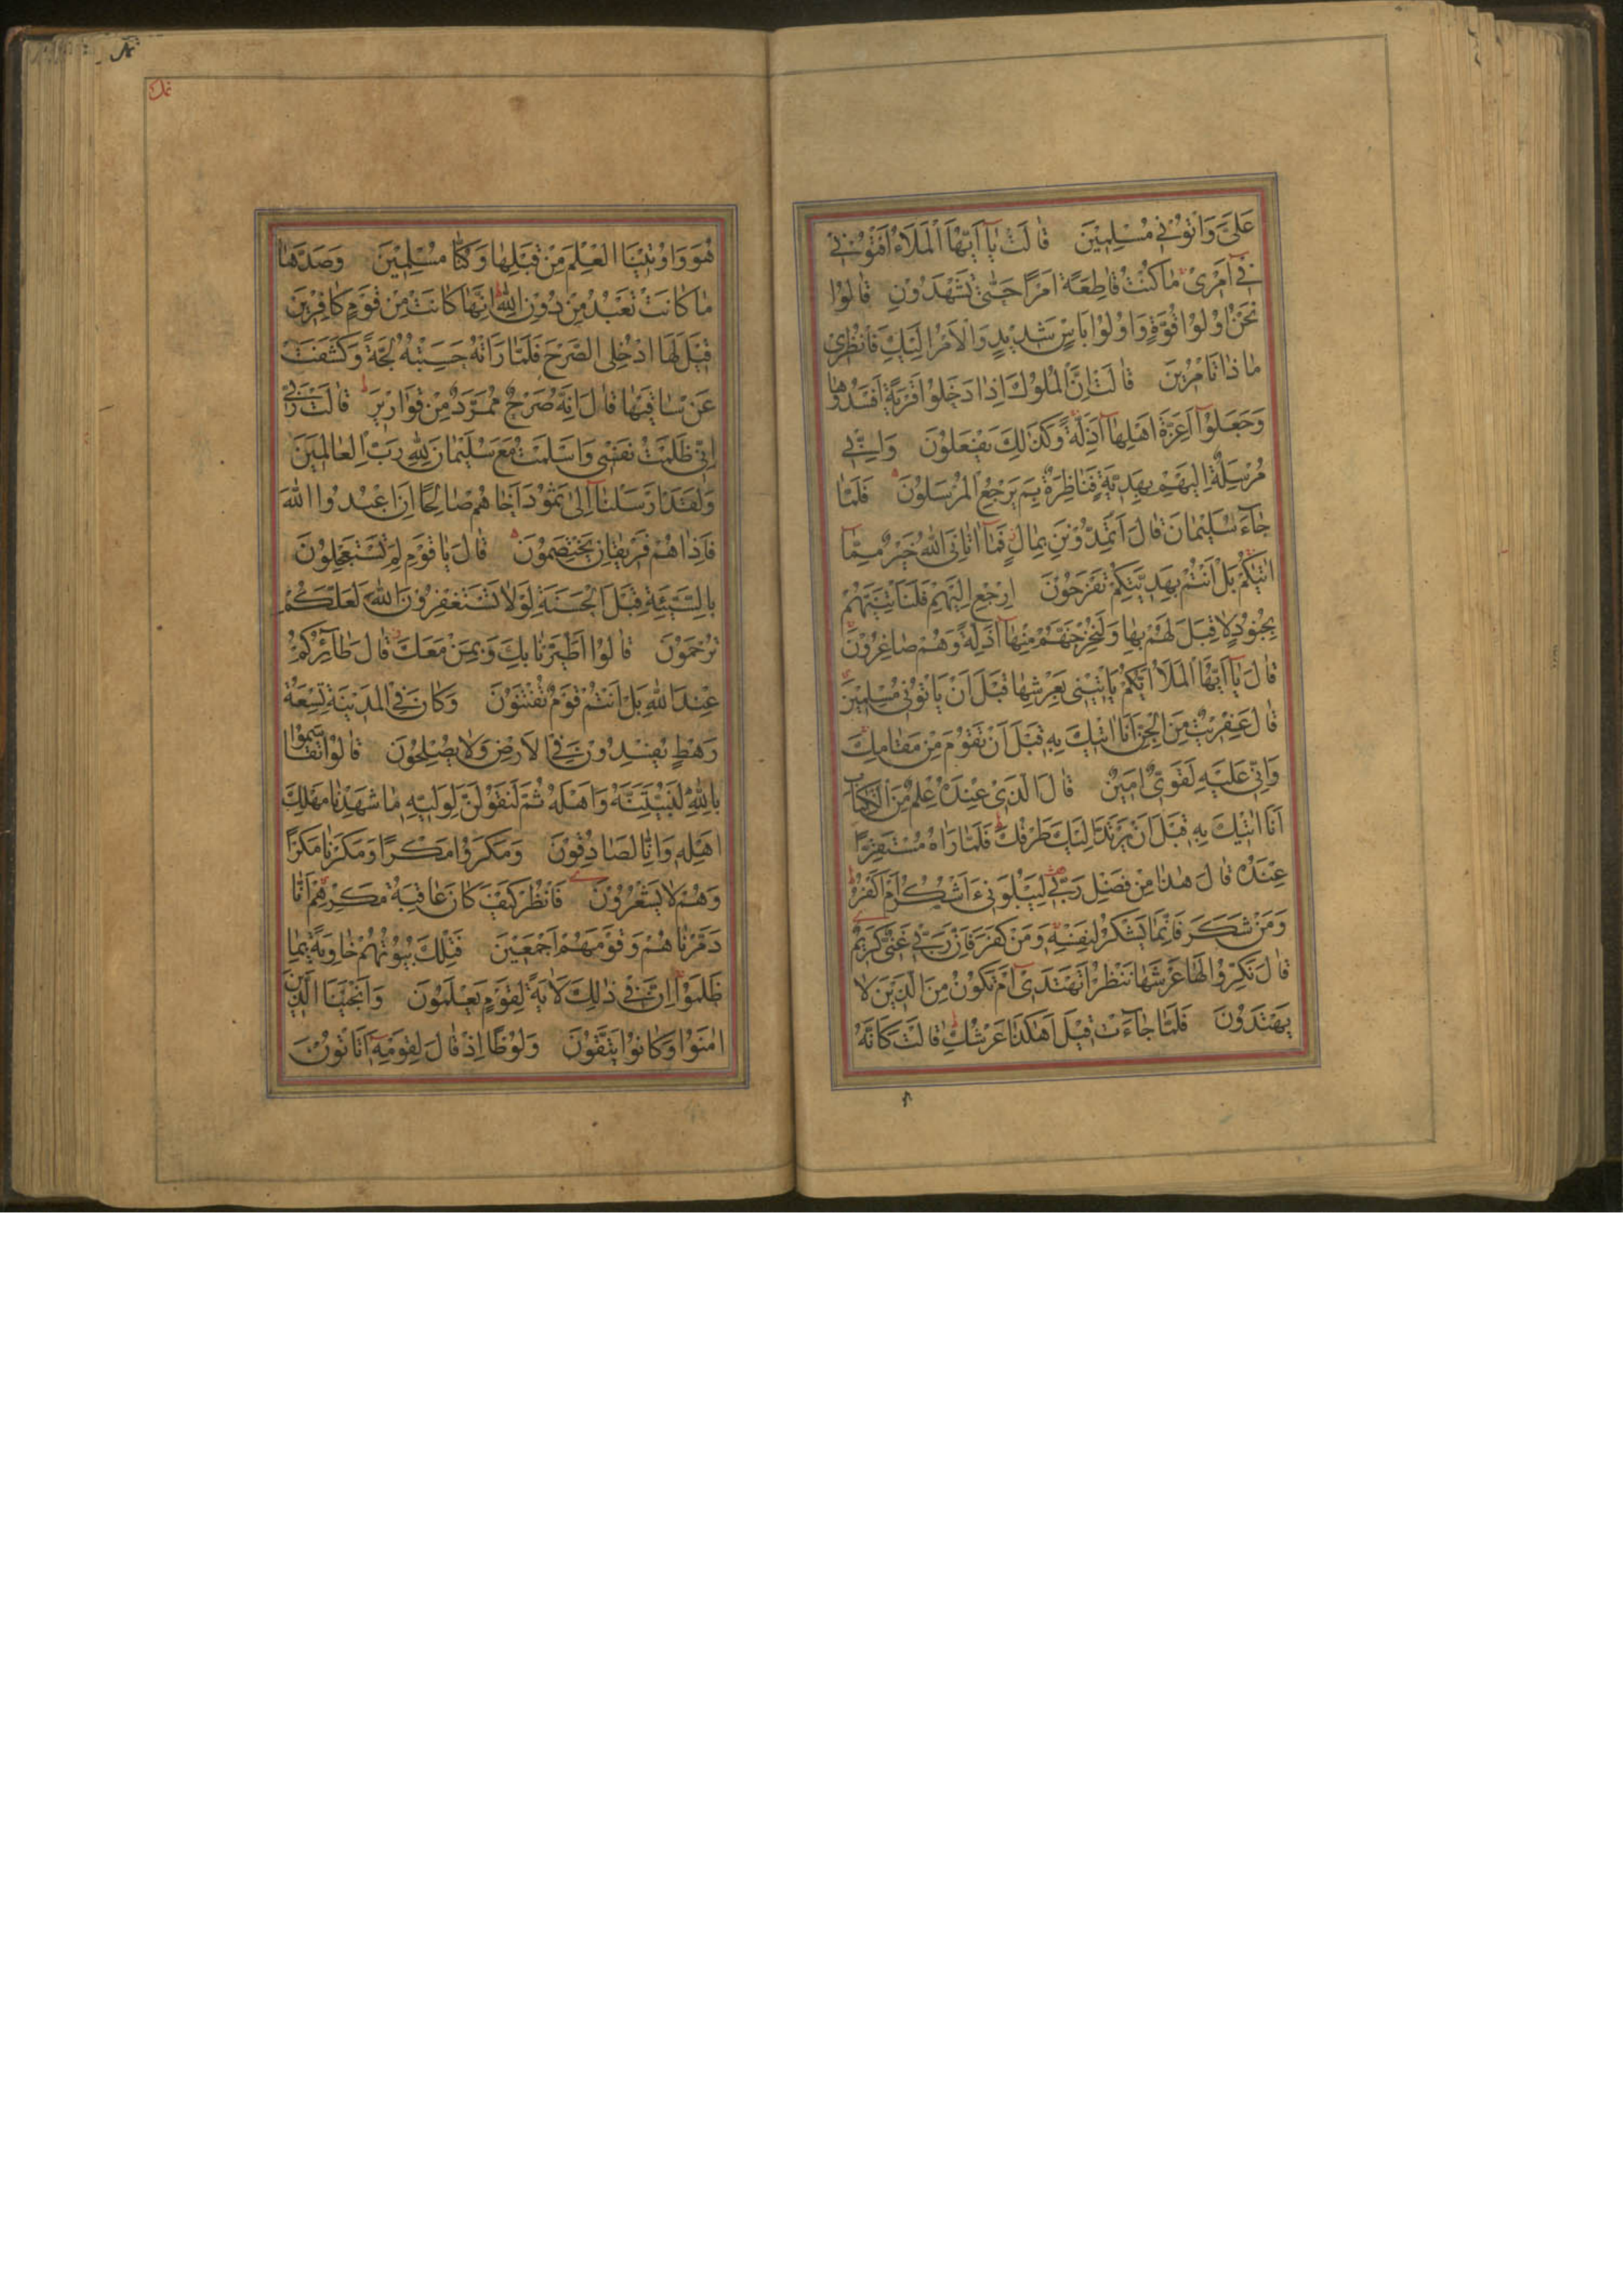 عَلَيَّ وَأْتُوْنِي مُسْلِمِيْنَ قَالَتْ يَآ أَيُّهَا الْمَلَاءُ أَفْتُوْنِي
فِيٓ أَمْرِي مَا كُنْتُ قَاطِعَةً اَمْرًا حَتّٰى تَشْهَدُوْنِ قَالُوْا
نَحْنُ اُولُوْا قُوَّةٍ وَاُولُوْا بَأْسٍ شَدِيْدٍ وَالْاَمْرُ اِلَيْكِ فَانْظُرِي
مَاذَا تَأْمُرِيْنَ قَالَتْ اِنَّ الْمُلُوْكَ اِذَا دَخَلُوْا قَرْيَةً اَفْسَدُوْهَا
وَجَعَلُوْٓا اَعِزَّةَ اَهْلِهَآ اَذِلَّةً وَكَذٰلِكَ يَفْعَلُوْنَ وَاِنِّي
مُرْسِلَةٌ اِلَيْهِمْ بِهَدِيَّةٍ فَنَاظِرَةٌ بِمَ يَرْجِعُ الْمُرْسَلُوْنَ فَلَمَّا
جَآءَ سُلَيْمَانَ قَالَ اَتُمِدُّوْنَنِ بِمَالٍ فَمَآ اٰتَانِيَ اللهُ خَيْرٌ مِمَّآ
اٰتٰيكُمْ بَلْ اَنْتُمْ بِهَدِيَّتِكُمْ تَفْرَحُوْنَ اِرْجِعْ اِلَيْهِمْ فَلَنَأْتِيَنَّهُمْ
بِجُنُوْدٍ لَا قِبَلَ لَهُمْ بِهَا وَلَنُخْرِجَنَّهُمْ مِنْهَآ اَذِلَّةً وَهُمْ صَاغِرُوْنَ
قَالَ يَآ اَيُّهَا الْمَلَأُ اَيُّكُمْ يَأْتِيْنِي بِعَرْشِهَا قَبْلَ اَنْ يَأْتُوْنِي مُسْلِمِيْنَ
قَالَ عِفْرِيْتٌ مِنَ الْجِنِّ اَنَا اٰتِيْكَ بِهِ قَبْلَ اَنْ تَقُوْمَ مِنْ مَقَامِكَ
وَاِنِّي عَلَيْهِ لَقَوِيٌّ اَمِيْنٌ قَالَ الَّذِي عِنْدَهُ عِلْمٌ مِنَ الْكِتَابِ
اَنَا اٰتِيْكَ بِهِ قَبْلَ اَنْ يَرْتَدَّ اِلَيْكَ طَرْفُكَ فَلَمَّا رَاٰهُ مُسْتَقِرًّا
عِنْدَهُ قَالَ هٰذَا مِنْ فَضْلِ رَبِّي لِيَبْلُوَنِي ءَاَشْكُرُ اَمْ اَكْفُرُ
وَمَنْ شَكَرَ فَاِنَّمَا يَشْكُرُ لِنَفْسِهِ وَمَنْ كَفَرَ فَاِنَّ رَبِّي غَنِيٌّ كَرِيْمٌ
قَالَ نَكِّرُوْا لَهَا عَرْشَهَا نَنْظُرْ اَتَهْتَدِيٓ اَمْ تَكُوْنُ مِنَ الَّذِيْنَ لَا
يَهْتَدُوْنَ فَلَمَّا جَآءَتْ قِيْلَ اَهٰكَذَا عَرْشُكِ قَالَتْ كَاَنَّهُ
هُوَ وَاُوْتِيْنَا الْعِلْمَ مِنْ قَبْلِهَا وَكُنَّا مُسْلِمِيْنَ وَصَدَّهَا
مَا كَانَتْ تَعْبُدُ مِنْ دُوْنِ اللهِ اِنَّهَا كَانَتْ مِنْ قَوْمٍ كَافِرِيْنَ
قِيْلَ لَهَا ادْخُلِي الصَّرْحَ فَلَمَّا رَاَتْهُ حَسِبَتْهُ لُجَّةً وَكَشَفَتْ
عَنْ سَاقَيْهَا قَالَ اِنَّهُ صَرْحٌ مُمَرَّدٌ مِنْ قَوَارِيْرَ قَالَتْ رَبِّ
اِنِّي ظَلَمْتُ نَفْسِي وَاَسْلَمْتُ مَعَ سُلَيْمَانَ لِلّٰهِ رَبِّ الْعَالَمِيْنَ
وَلَقَدْ اَرْسَلْنَآ اِلٰى ثَمُوْدَ اَخَاهُمْ صَالِحًا اَنِ اعْبُدُوا اللهَ
فَاِذَا هُمْ فَرِيْقَانِ يَخْتَصِمُوْنَ قَالَ يَا قَوْمِ لِمَ تَسْتَعْجِلُوْنَ
بِالسَّيِّئَةِ قَبْلَ الْحَسَنَةِ لَوْلَا تَسْتَغْفِرُوْنَ اللهَ لَعَلَّكُمْ
تُرْحَمُوْنَ قَالُوا اطَّيَّرْنَا بِكَ وَبِمَنْ مَعَكَ قَالَ طَآئِرُكُمْ
عِنْدَ اللهِ بَلْ اَنْتُمْ قَوْمٌ تُفْتَنُوْنَ وَكَانَ فِي الْمَدِيْنَةِ تِسْعَةُ
رَهْطٍ يُفْسِدُوْنَ فِي الْاَرْضِ وَلَا يُصْلِحُوْنَ قَالُوْا تَقَاسَمُوْا
بِاللهِ لَنُبَيِّتَنَّهُ وَاَهْلَهُ ثُمَّ لَنَقُوْلَنَّ لِوَلِيِّهِ مَا شَهِدْنَا مَهْلِكَ
اَهْلِهِ وَاِنَّا لَصَادِقُوْنَ وَمَكَرُوْا مَكْرًا وَمَكَرْنَا مَكْرًا
وَهُمْ لَا يَشْعُرُوْنَ فَانْظُرْ كَيْفَ كَانَ عَاقِبَةُ مَكْرِهِمْ اَنَّا
دَمَّرْنَاهُمْ وَقَوْمَهُمْ اَجْمَعِيْنَ فَتِلْكَ بُيُوْتُهُمْ خَاوِيَةً بِمَا
ظَلَمُوْا اِنَّ فِي ذٰلِكَ لَاٰيَةً لِقَوْمٍ يَعْلَمُوْنَ وَاَنْجَيْنَا الَّذِيْنَ
اٰمَنُوْا وَكَانُوْا يَتَّقُوْنَ وَلُوْطًا اِذْ قَالَ لِقَوْمِهِ اَتَأْتُوْنَ